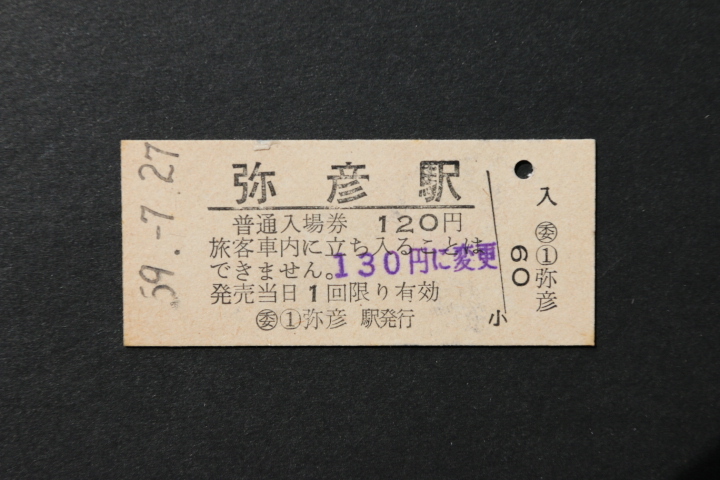 59.-7.27
弥彦駅
普通入場券 120円
旅客車内に立ち入ることは
できません。
130円に変更
発売当日1回限り有効
㊤委①弥彦 駅発行
小
60
入
委①弥彦